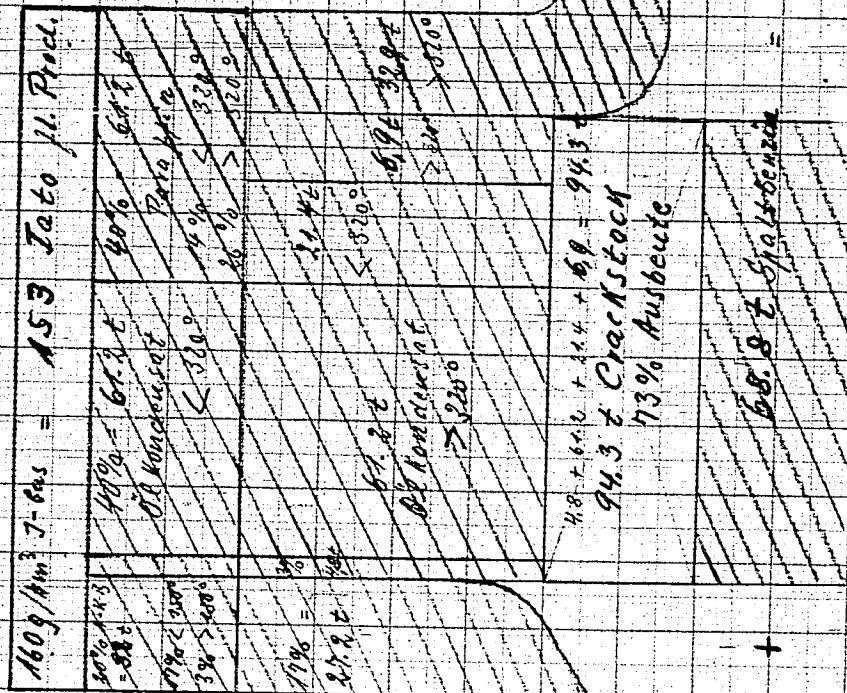 160 g/Nm³ J-Gas = 153 Tato fl. Prod.
20% A.K.B
= 32 t
17% < 200°
3% > 200°
40% = 61.2 t
Ölkondensat
< 320°
40% 61.2 t
Paraffin
14% < 320°
26% > 320°
17% =
27.2 t
3%
4,8 t
61.2 t
Ölkondensat
> 320°
21.4 t
< 320°
6,9 t 32,9 t
> 320°
> 320°
4.8 + 61.2 + 21.4 + 6,9 = 94.3 t
94.3 t Crackstock
73% Ausbeute
68.8 t Spaltbenzin
+
=